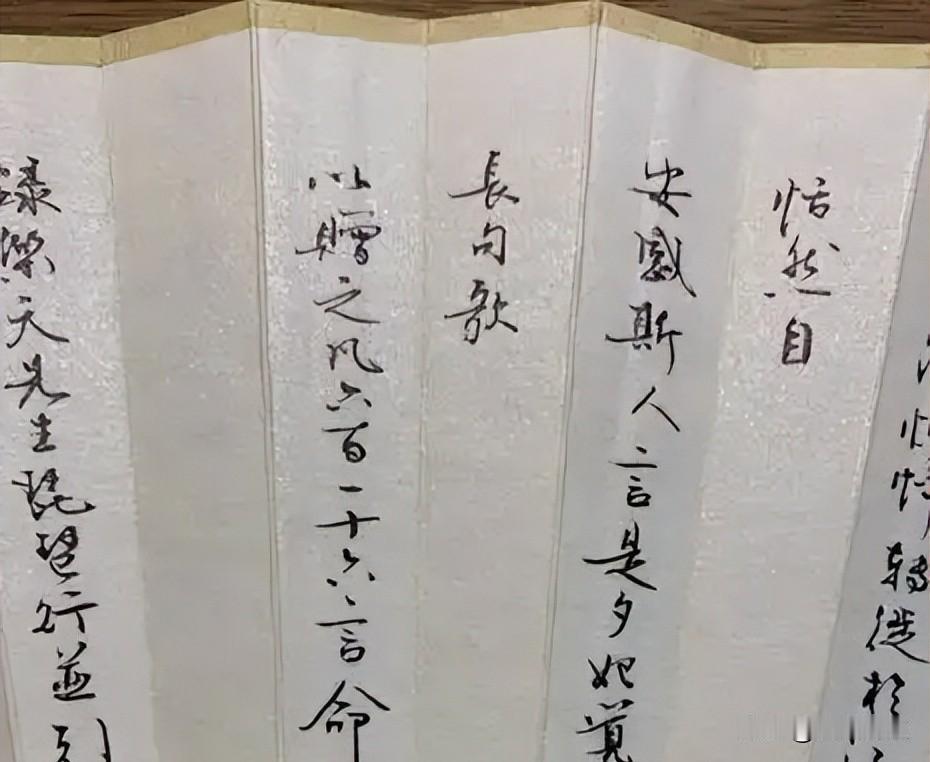 悴轉徙於
恬然自
安感斯人言是夕始覺
長句歌
以贈之凡六百一十六言命
錄樂天先生琵琶行並引